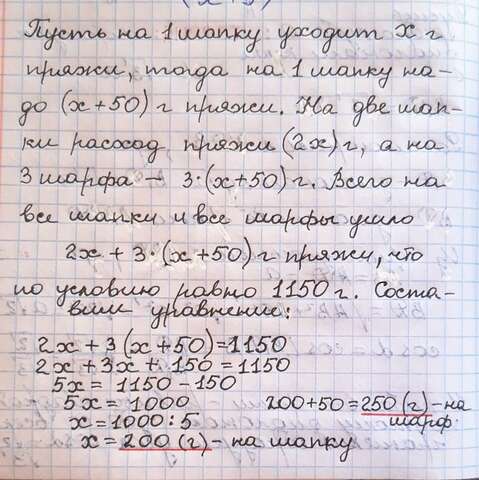 (x+5)
Пусть на 1 шапку уходит x г
пряжи, тогда на 1 шапку на-
до (x+50) г пряжи. На две шап-
ки расход пряжи (2x) г, а на
3 шарфа – 3·(x+50) г. Всего на
все шапки и все шарфы ушло
2x + 3·(x+50) г пряжи, что
по условию равно 1150 г. Соста-
вим уравнение:
2x + 3(x+50)=1150
2x + 3x + 150 = 1150
5x = 1150 - 150
5x = 1000
x = 1000 : 5
x = 200 (г) - на шапку
200+50 = 250 (г) - на
шарф.